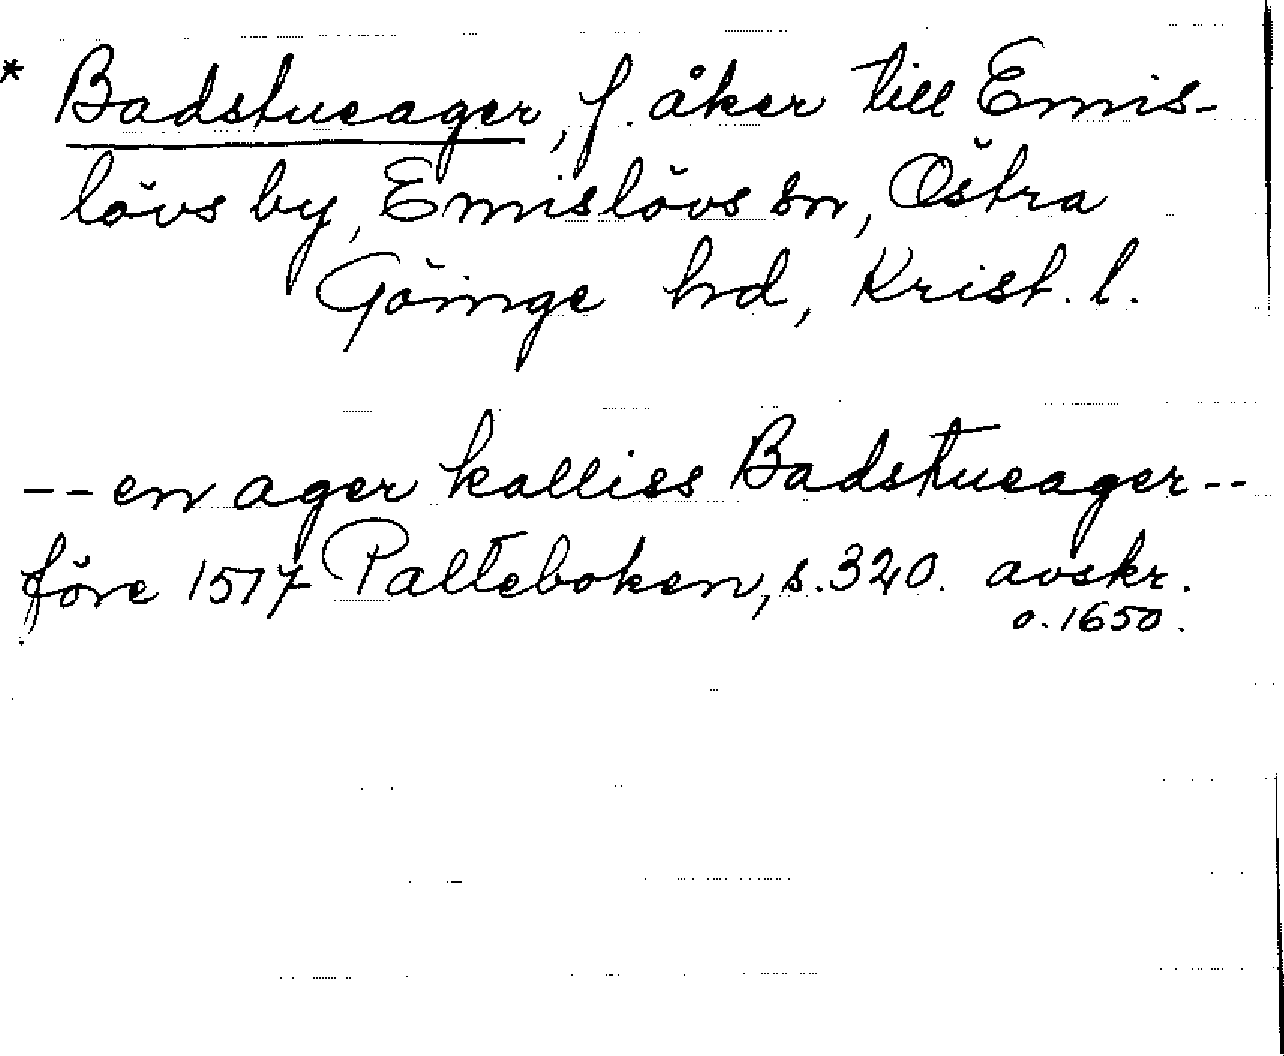 * Badstueager, f. åker till Emis-
lövs by, Emislövs sn, Östra
Göinge hd, Krist. l.
-- en ager kallies Badstueager --
före 1517 Palteboken, s. 320. avskr.
o. 1650.